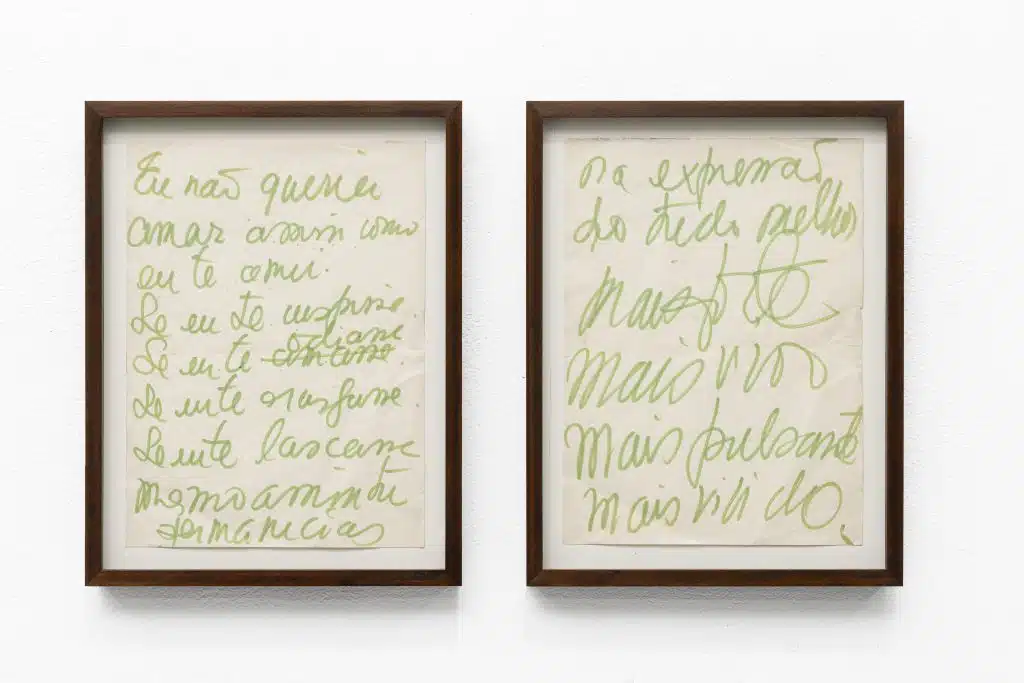 Eu não queria
amar assim como
eu te amei.
Se eu te cuspisse
Se eu te odiasse
Se eu te rasgasse
Se eu te lascasse
mesmo assim tu
permanecias
na expressão
do tudo melhor
mais forte
mais vivo
mais pulsante
mais vivido.